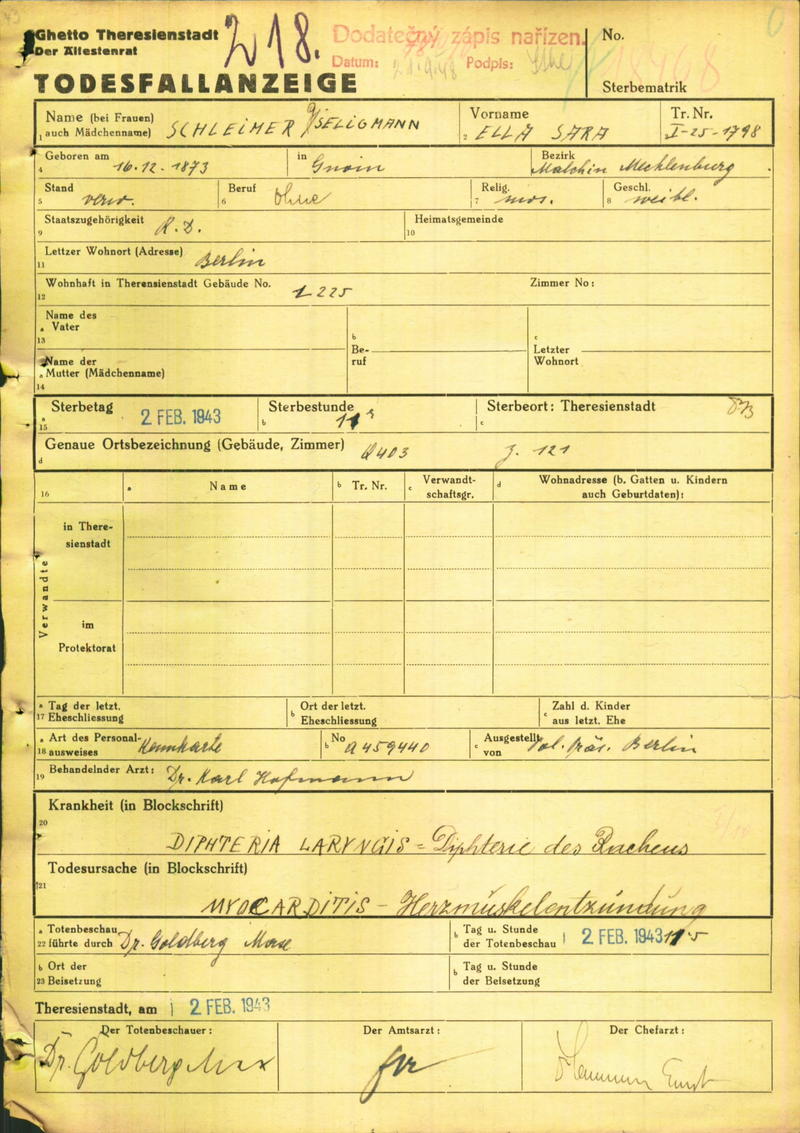 Ghetto Theresienstadt
Der Ältestenrat
218.
Dodatečný zápis nařízen.
Datum: Podpis:
No.
Sterbematrik
TODESFALLANZEIGE
Name (bei Frauen)
1 auch Mädchenname) SCHLEIMER SELIGMANN
Vorname
2 ELLA SARA
Tr. Nr.
I-25-1798
Geboren am
4 16.12.1873
in Gnoin
Bezirk
Malchin Mecklenburg
Stand
5 verw.
Beruf
6 Ohne
Relig.
7 mos.
Geschl.
8 weibl.
Staatszugehörigkeit
9 R.D.
Heimatsgemeinde
10
Lettzer Wohnort (Adresse)
11 Berlin
Wohnhaft in Therensienstadt Gebäude No.
12 L 225
Zimmer No:
Name des
a Vater
13
b
Be-
ruf
c
Letzter
Wohnort
Name der
a Mutter (Mädchenname)
14
Sterbetag
a
15 2 FEB. 1943
Sterbestunde
b
Sterbeort: Theresienstadt
c
Genaue Ortsbezeichnung (Gebäude, Zimmer)
d Q403 J. 121
16
a Name
b Tr. Nr.
c Verwandt-
schaftsgr.
d Wohnadresse (b. Gatten u. Kindern
auch Geburtdaten):
Verwandte
in There-
sienstadt
im
Protektorat
a Tag der letzt.
17 Eheschliessung
b Ort der letzt.
Eheschliessung
c Zahl d. Kinder
aus letzt. Ehe
a Art des Personal-
18 ausweises Kennkarte
b No A 459440
c Ausgestellt
von Pol. Präs. Berlin
Behandelnder Arzt:
19 Dr. Karl Hofmann
Krankheit (in Blockschrift)
20
DIPHTERIA LARYNGIS = Diphterie des Rachens
Todesursache (in Blockschrift)
21
MYOCARDITIS - Herzmuskelentzündung
a Totenbeschau
22 führte durch Dr. Goldberg Max
b Tag u. Stunde
der Totenbeschau 2 FEB. 1943
b Ort der
23 Beisetzung
b Tag u. Stunde
der Beisetzung
Theresienstadt, am 2 FEB. 1943
Der Totenbeschauer:
Dr. Goldberg Max
Der Amtsarzt:
Der Chefarzt: